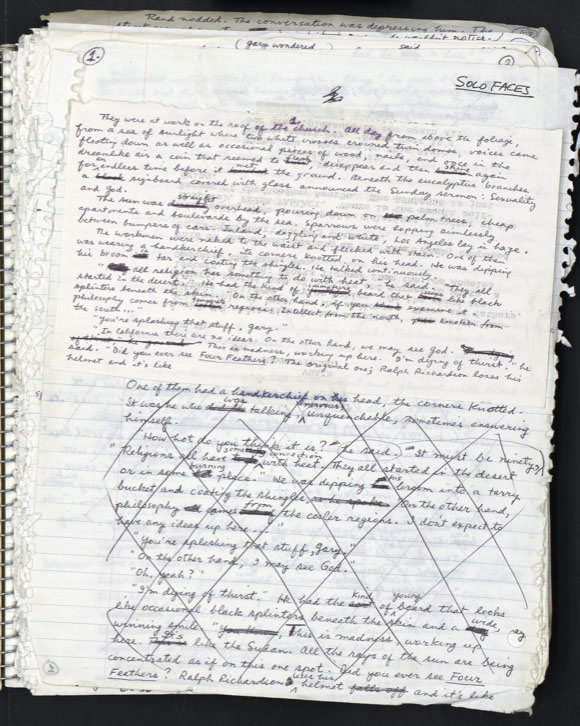 Rand nodded. The conversation was depressing him. The
he wouldn't notice.
(gary wondered) said
1.
SOLO FACES
1.
They were at work on the roof of the church. All day from above the foliage,
from a sea of sunlight where two white crosses crowned twin domes, voices came
floating down as well as occasional pieces of wood, nails, and once in the
dreamlike air a coin that seemed to disappear and then shine again
for endless time before it met the ground. Beneath the eucalyptus branches
a signboard covered with glass announced the Sunday sermon: Sexuality
and God.
The sun was straight overhead, pouring down on palm trees, cheap
apartments and boulevards by the sea. Sparrows were hopping aimlessly
between bumpers of cars. Inland, dazzling and white, Los Angeles lay in haze.
The workmen were naked to the waist and flecked with stain. One of them
was wearing a handkerchief, its corners knotted, on his head. He was dipping
his broom in tar and coating the shingles. He talked continuously.
"all religion has something to do with heat," he said. "They all
started in the desert." He had the kind of beard that like black
splinters beneath the skin. On the other hand, if you examine it -
philosophy comes from regions. Intellect from the north, emotion from
the south..."
"You're splashing that stuff, Gary."
"In California there are no ideas. On the other hand, we may see God.
This is madness, working up here. I'm dying of thirst," he
said. "Did you ever see Four Feathers? The original one; Ralph Richardson loses his
helmet and it's like
One of them had a handkerchief on his head, the corners knotted.
It was he who was talking, unquenchable, sometimes answering
himself.
"How hot do you think it is?" he said. "It must be ninety.
"Religions all have some connection with heat. They all started in the desert
or in some burning place." He was dipping his broom into a tarry
bucket and coating the shingles. "On the other hand,
philosophy comes from the cooler regions. I don't expect to
have any ideas up here..."
"You're splashing that stuff, Gary."
"On the other hand, I may see God."
"Oh, yeah?"
"I'm dying of thirst." He had the kind of young beard that looks
like occasional black splinters beneath the skin and a wide,
winning smile. "This is madness, working up
here. It's like the Sudan. All the rays of the sun are being
concentrated as if on this one spot. Did you ever see Four
Feathers? Ralph Richardson loses his helmet and it's like